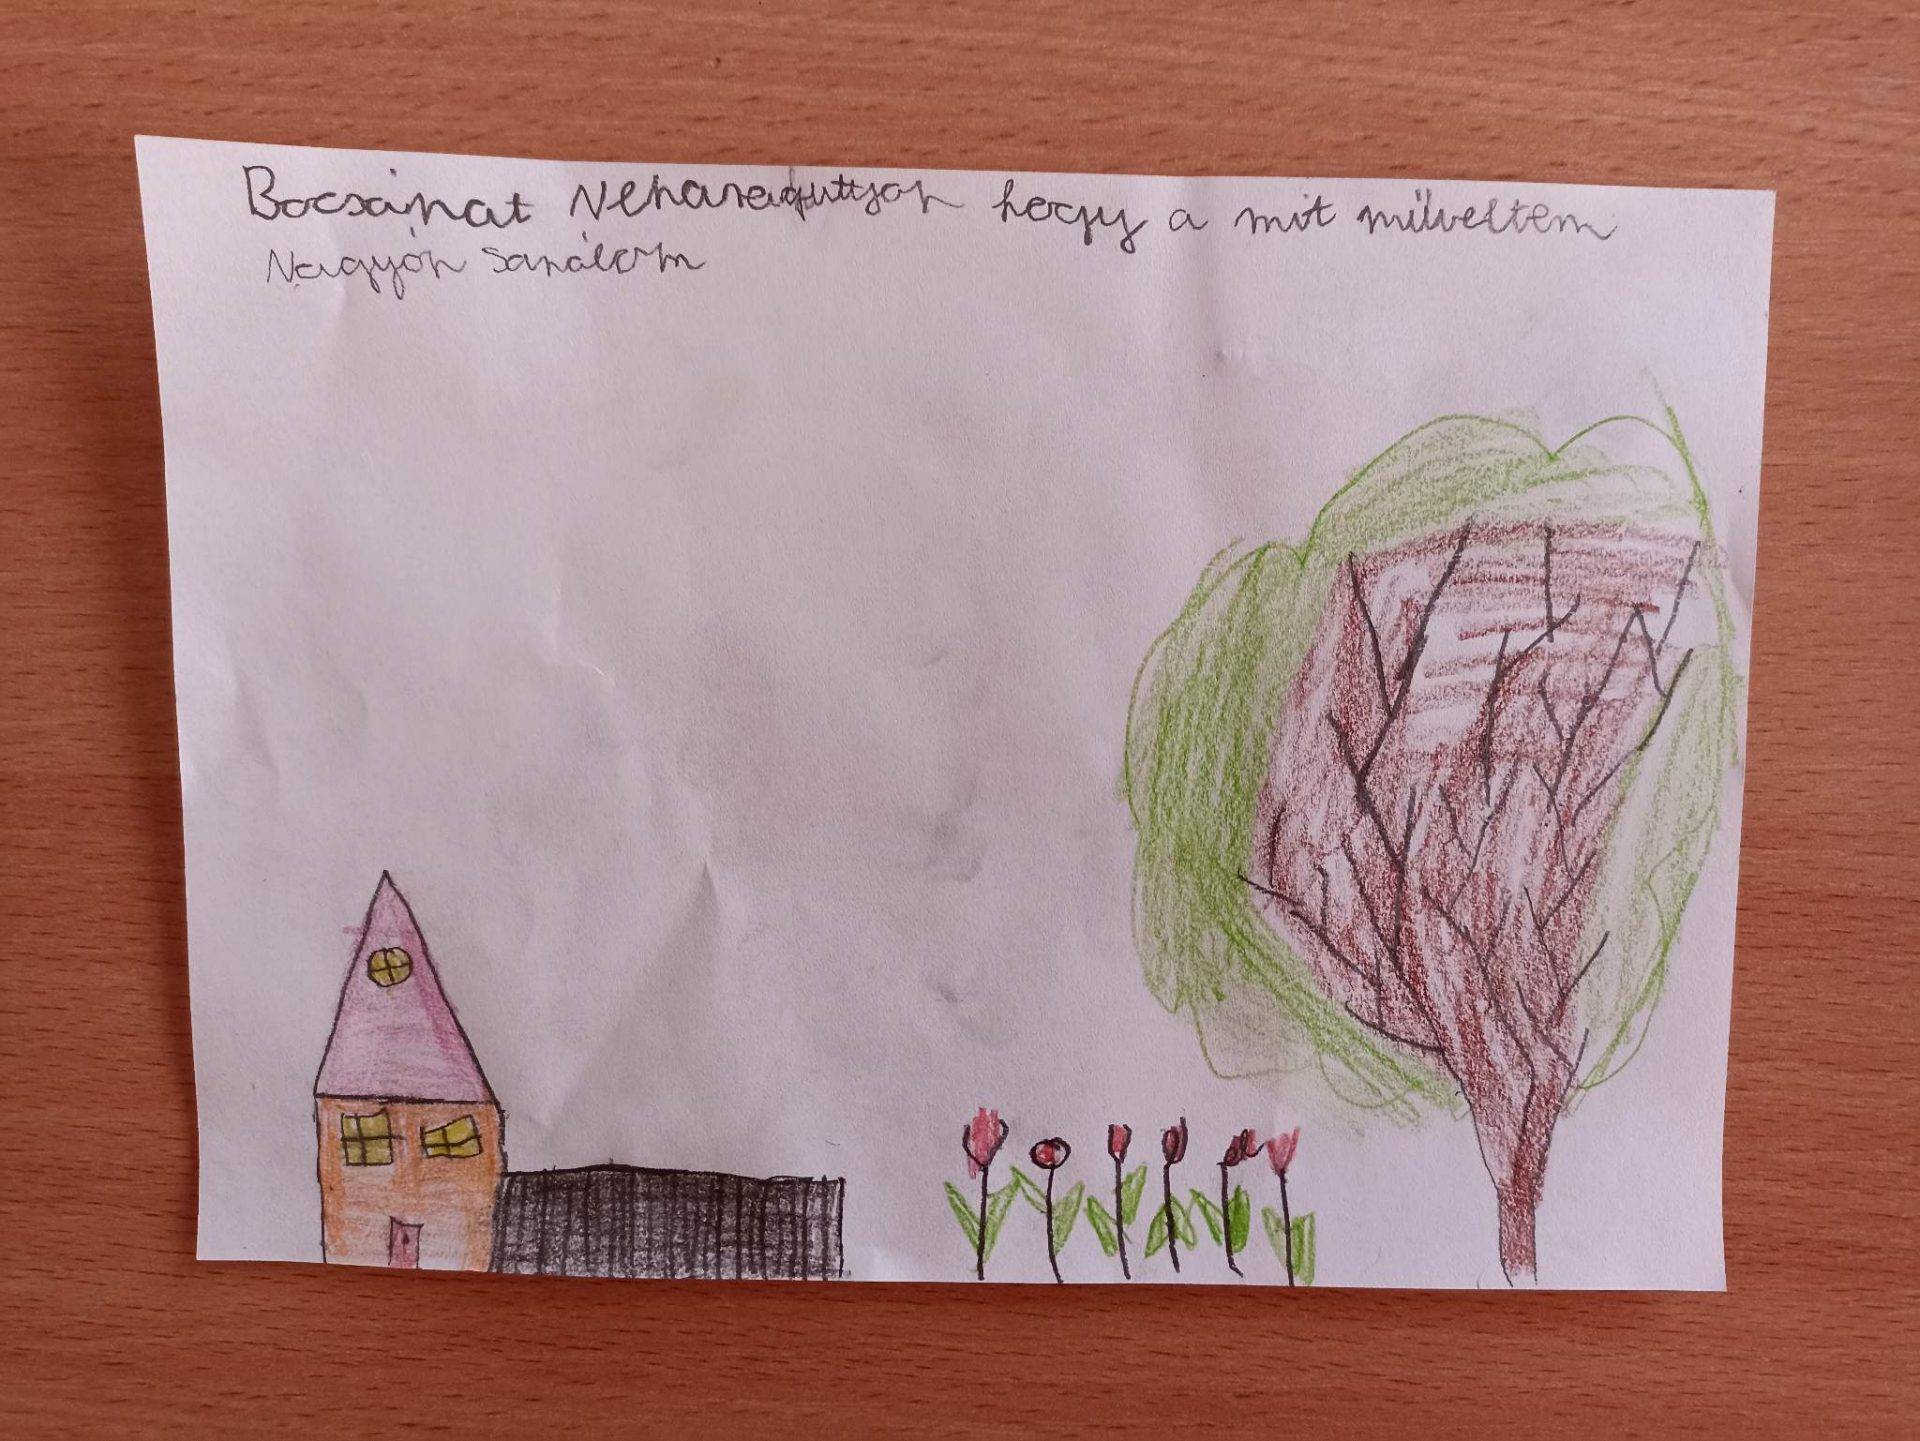 Bocsánat Neharaguttjon hogy a mit műveltem
Nagyon sanálom